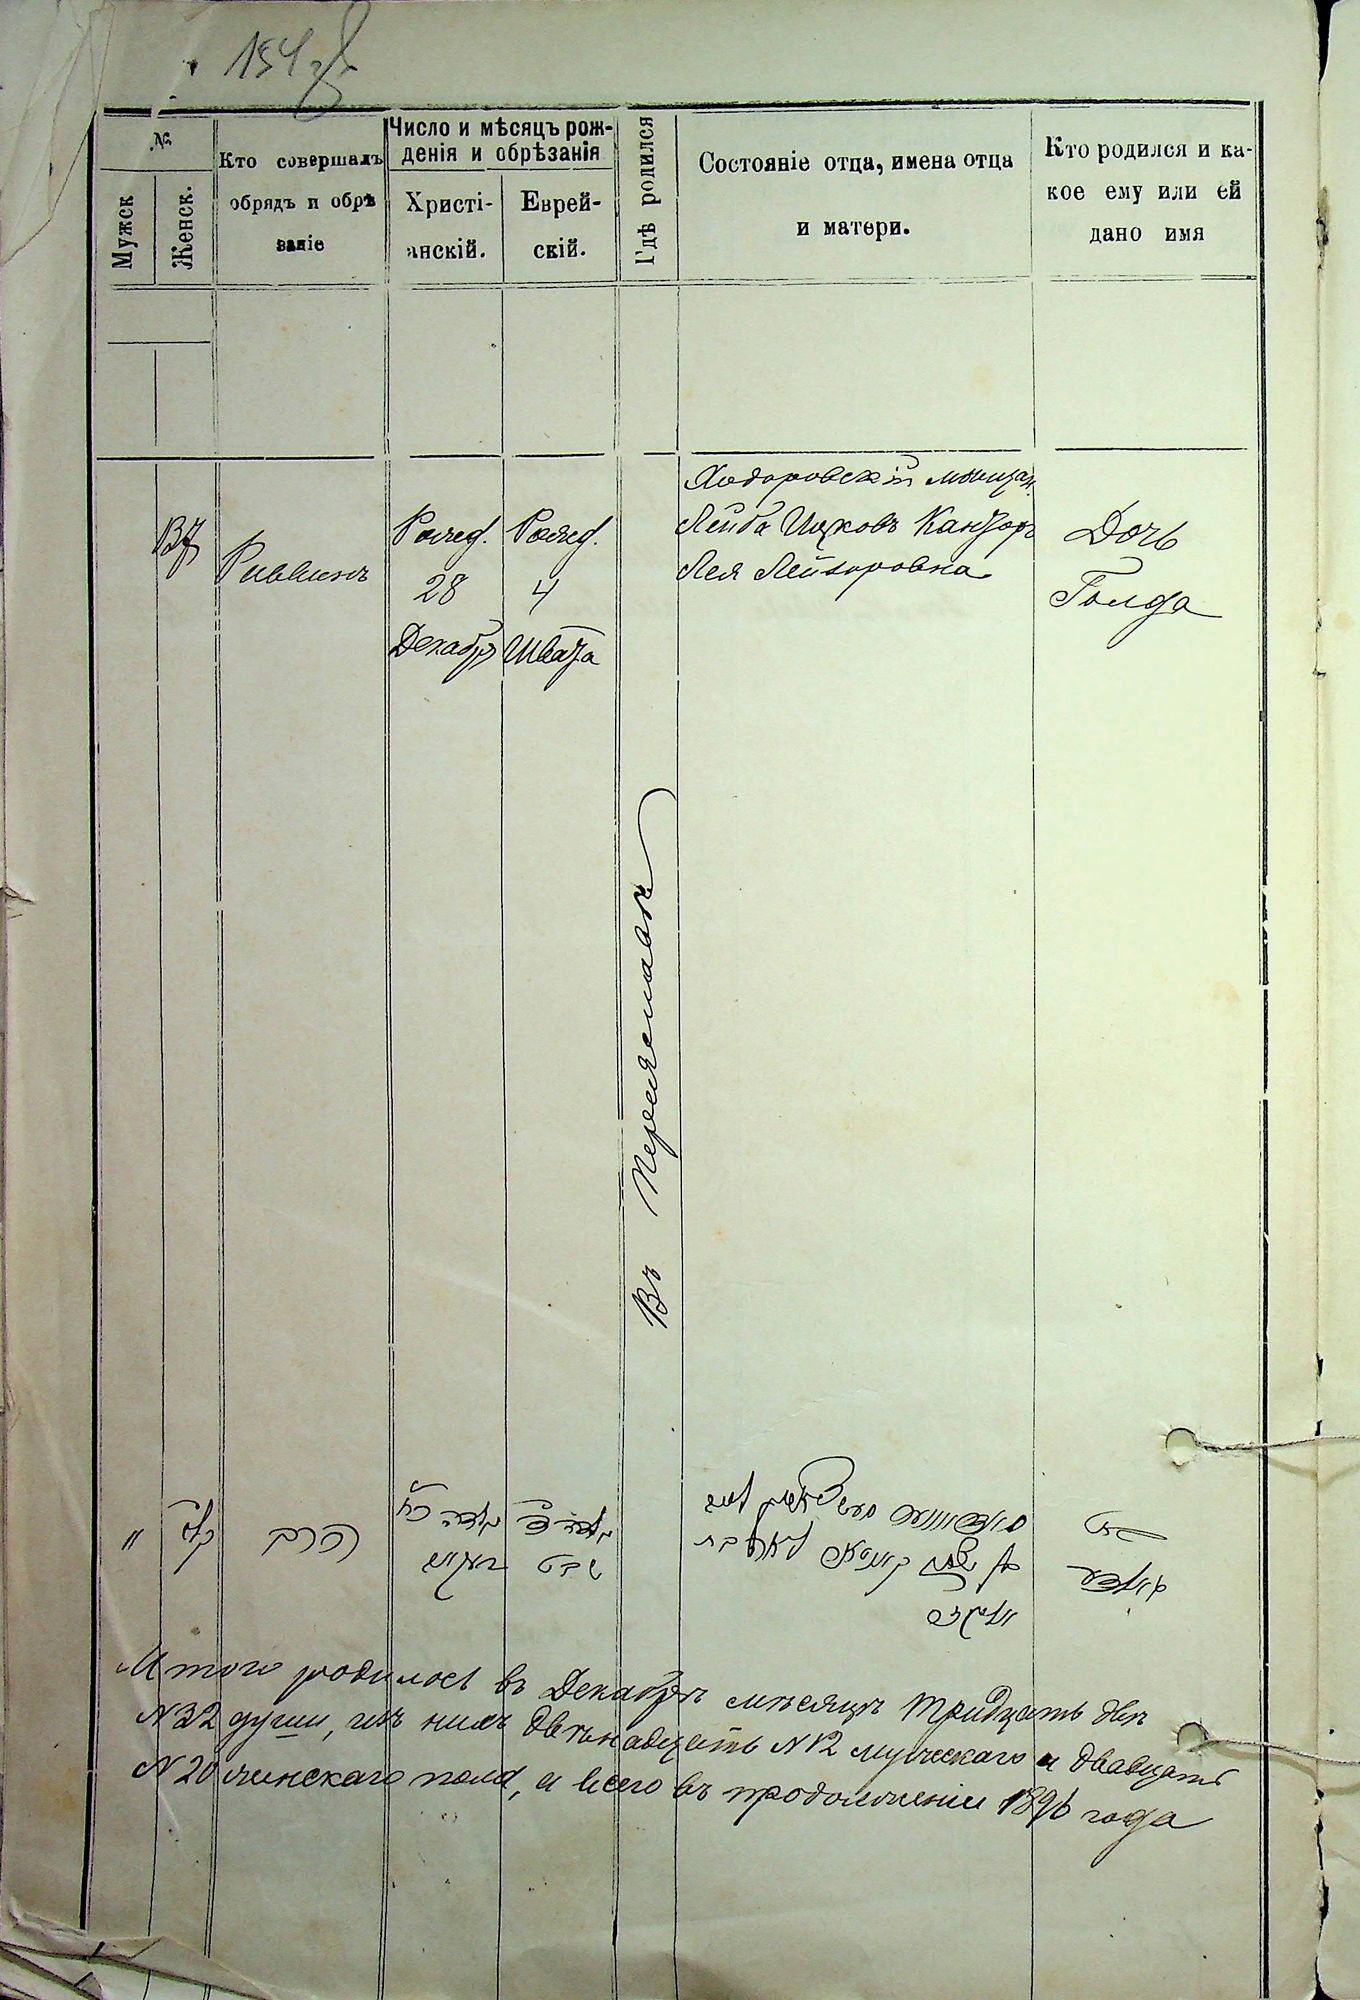 154
№
Мужск
Женск.
Кто совершалъ
обрядъ и обрѣ
заніе
Число и мѣсяцъ рож-
денія и обрѣзанія
Христі-
анскій.
Еврей-
скій.
Гдѣ родился
Состояніе отца, имена отца
и матери.
Кто родился и ка-
кое ему или ей
дано имя
Раввинъ
28
Декабр
4
Швата
Въ Переяславѣ
Ходоровскій мѣщан.
Лейба Ицковъ Канторъ
Лея Лейзоровна
Дочь
Голда
"
הרב
שבט
בת
גולדע
Итого родилось въ Декабрѣ мѣсяцѣ тридцать двѣ
N 32 души, изъ нихъ двѣнадцать N 12 мужескаго и двадцать
N 20 женскаго пола, а всего въ продолженіи 1896 года